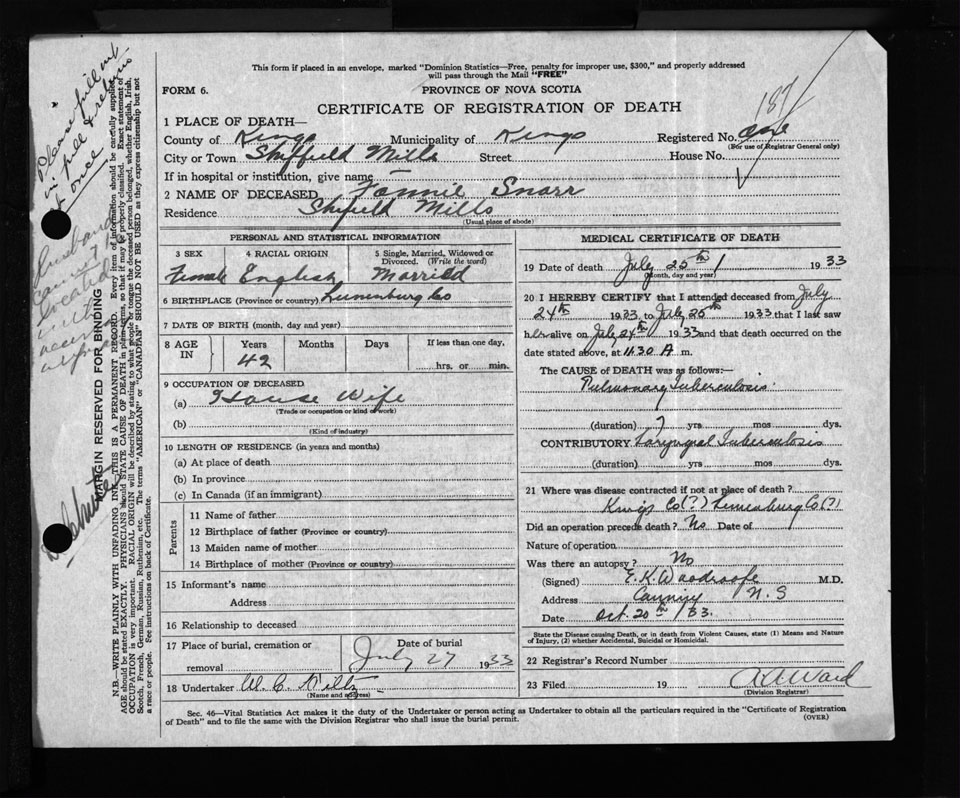 This form if placed in an envelope, marked "Dominion Statistics—Free, penalty for improper use, $300," and properly addressed
will pass through the Mail "FREE"
FORM 6.
PROVINCE OF NOVA SCOTIA
CERTIFICATE OF REGISTRATION OF DEATH
187
1 PLACE OF DEATH—
County of Kings Municipality of Kings Registered No.
(For use of Registrar General only)
City or Town Sheffield Mills Street House No.
If in hospital or institution, give name —
2 NAME OF DECEASED Fannie Snarr
Residence Sheffield Mills
(Usual place of abode)
PERSONAL AND STATISTICAL INFORMATION
3 SEX 4 RACIAL ORIGIN 5 Single, Married, Widowed or Divorced. (Write the word)
Female English Married
6 BIRTHPLACE (Province or country) Lunenburg Co
7 DATE OF BIRTH (month, day and year)
8 AGE IN Years Months Days If less than one day,
42 hrs. or min.
9 OCCUPATION OF DECEASED
(a) House Wife
(Trade or occupation or kind of work)
(b)
(Kind of industry)
10 LENGTH OF RESIDENCE (in years and months)
(a) At place of death
(b) In province
(c) In Canada (if an immigrant)
Parents
11 Name of father
12 Birthplace of father (Province or country)
13 Maiden name of mother
14 Birthplace of mother (Province or country)
15 Informant's name
Address
16 Relationship to deceased
17 Place of burial, cremation or removal Date of burial
July 27 1933
18 Undertaker W. C.
(Name and address)
MEDICAL CERTIFICATE OF DEATH
19 Date of death July 25th 1933
(Month, day and year)
20 I HEREBY CERTIFY that I attended deceased from July
24th 1933, to July 25th 1933 that I last saw
her alive on July 24th 1933 and that death occurred on
date stated above, at 11.30 A m.
The CAUSE of DEATH was as follows:—
Pulmonary Tuberculosis
(duration) ? yrs mos dys.
CONTRIBUTORY Laryngeal Tuberculosis
(duration) yrs mos dys.
21 Where was disease contracted if not at place of death?
Kings Co(?) Lunenburg Co(?)
Did an operation precede death? No Date of
Nature of operation
Was there an autopsy? No
(Signed) E. K. Woodroofe M.D.
Address Canning N. S
Date Oct. 20th 33.
State the Disease causing Death, or in death from Violent Causes, state (1) Means and Nature
of Injury, (2) whether Accidental, Suicidal or Homicidal.
22 Registrar's Record Number
23 Filed 19 Ward
(Division Registrar)
Sec. 46—Vital Statistics Act makes it the duty of the Undertaker or person acting as Undertaker to obtain all the particulars required in the "Certificate of Registration
of Death" and to file the same with the Division Registrar who shall issue the burial permit.
(OVER)
MARGIN RESERVED FOR BINDING
N.B.—WRITE PLAINLY WITH UNFADING INK—THIS IS A PERMANENT RECORD. Every item of information should be carefully supplied.
AGE should be stated EXACTLY. PHYSICIANS should STATE CAUSE OF DEATH in plain terms, so that it may be properly classified. Exact statement of
OCCUPATION is very important. RACIAL ORIGIN will be described by stating to what people or tongue the deceased person belonged, whether English, Irish,
Scotch, French, German, Russian, Ruthenian, etc. The terms "AMERICAN" or "CANADIAN" SHOULD NOT BE USED as they express citizenship but not
a race or people. See instructions on back of Certificate.
Please fill out
in full & return
at once
Husband
cannot be
located